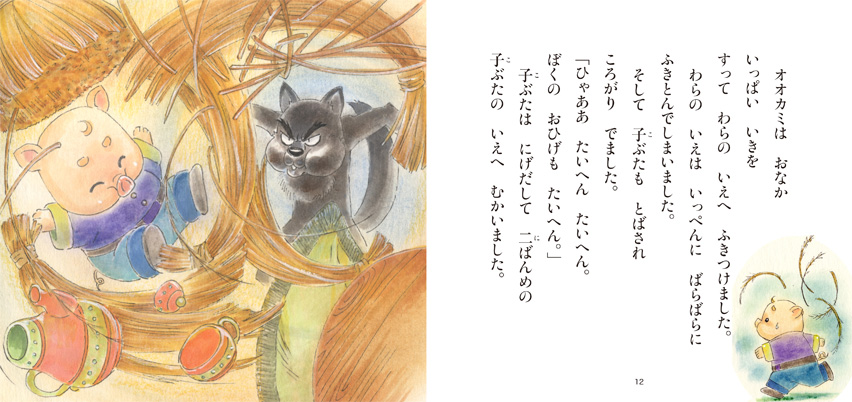 オオカミは おなか
いっぱい いきを
すって わらの いえへ ふきつけました。
わらの いえは いっぺんに ばらばらに
ふきとんでしまいました。
そして 子ぶたも とばされ
ころがり でました。
「ひゃああ たいへん たいへん。
ぼくの おひげも たいへん。」
子ぶたは にげだして 二ばんめの
子ぶたの いえへ むかいました。
12